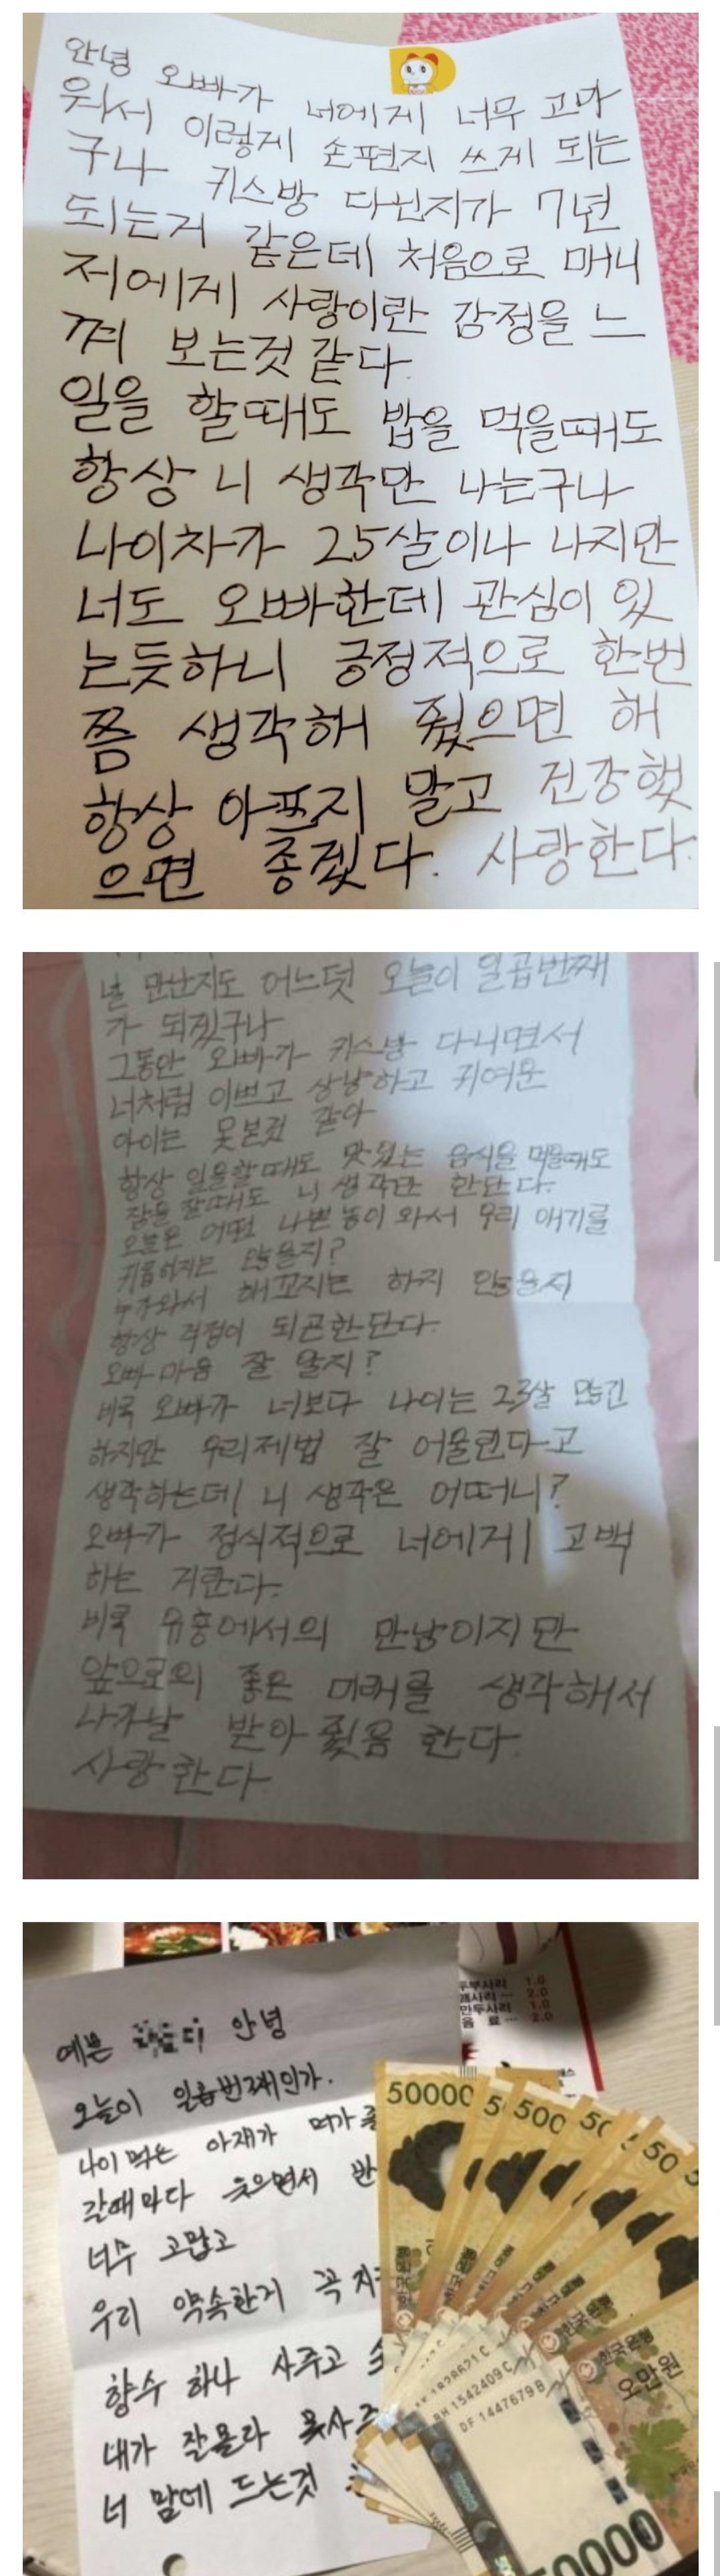 안녕 오빠가 너에게 너무 고마
워서 이렇게 손편지 쓰게 되는
구나 키스방 다닌지가 7년
되는거 같은데 처음으로 매니
저에게 사랑이란 감정을 느
껴 보는것 같다.
일을 할때도 밥을 먹을때도
항상 니 생각만 나는구나
나이차가 25살이나 나지만
너도 오빠한데 관심이 있
는듯하니 긍정적으로 한번
쯤 생각해 줬으면 해
항상 아프지 말고 건강했
으면 좋겠다. 사랑한다.
널 만난지도 어느덧 오늘이 일곱번째
가 되겠구나
그동안 오빠가 키스방 다니면서
너처럼 이쁘고 상냥하고 귀여운
아이는 못본것 같아
항상 일을할때도 맛있는 음식을 먹을때도
잠을 잘때도 니 생각만 한단다.
오늘은 어떤 나쁜놈이 와서 우리 애기를
괴롭히지는 않을지?
누가와서 해꼬지는 하지 않을지
항상 걱정이 되곤한단다.
오빠 마음 잘 알지?
비록 오빠가 너보다 나이는 23살 많긴
하지만 우리제법 잘 어울린다고
생각하는데 니 생각은 어떠니?
오빠가 정식적으로 너에게 고백
하는 거란다.
비록 유흥에서의 만남이지만
앞으로의 좋은 미래를 생각해서
나가날 받아줬음 한다.
사랑한다
예쁜 안녕
오늘이 일곱번째인가.
나이먹은 아재가 뭐가 좋
갈때마다 웃으면서 반
너무 고맙고
우리 약속한거 꼭 지
향수 하나 사주고
내가 잘몰라 못사주
너 맘에 드는것
두부사리 1.0
2.0
만두사리 1.0
음 료 2.0
50000
5
500
50
50
5
한국은행
한국은행
오만원
BH 1542409 C
DF 1447679 B
50000